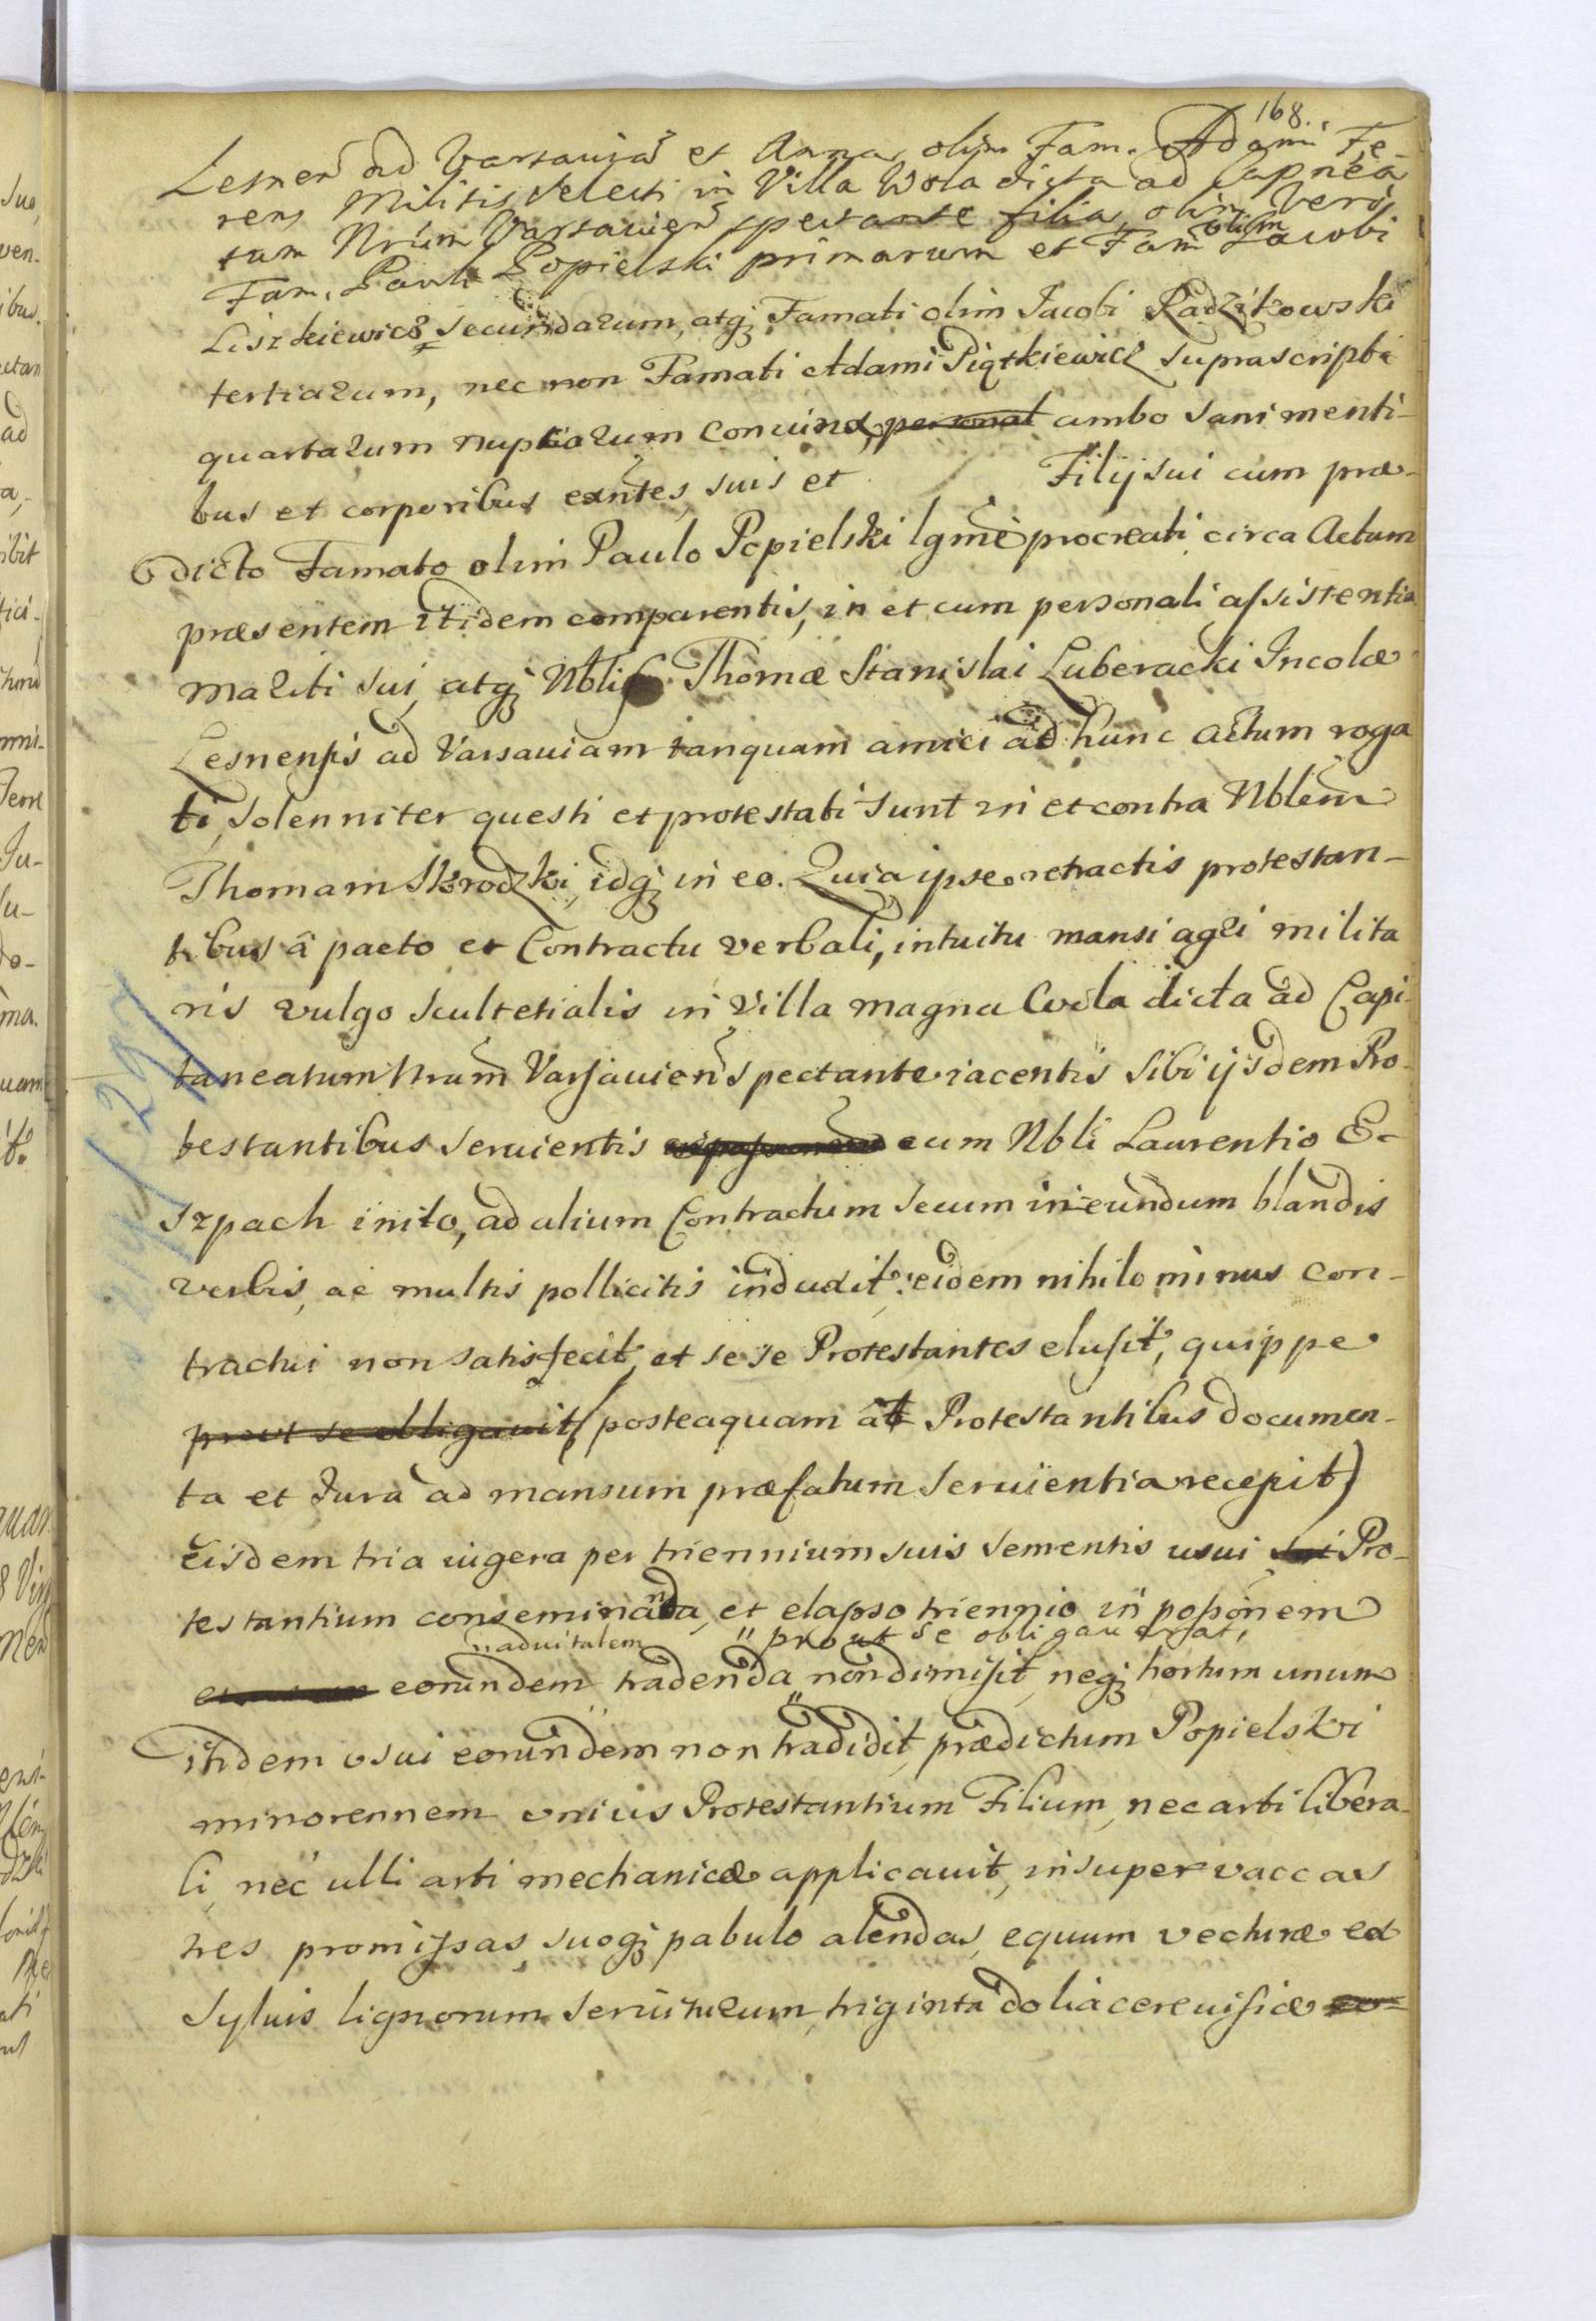 168.
Lesnen ad Varsauiã et Anna olim Fam. Adami Fe-
rens Militis Selecti in Villa Wola dicta ad Capnea
tum Nrum Varsauien spectante filia, olim Vero
Fam. Pauli Popielski primarum et Fam olim Jacobi
Liszkiewicz secundarum, atq Famati olim Jacobi Radzikowski
tertiarum, nec non Famati Adami Piątkiewicz suprascripti
quartarum nuptiarum Coniunx, personal ambo sani menti-
bus et corporibus exñtes, suis et Filij sui cum præ-
dicto Famato olim Paulo Popielski lgmẽ procreati circa Actum
præsentem itidem comparentis, in et cum personali assistentia
mariti sui, atq Nblis Thomæ Stanislai Luberacki Incolæ
Lesnensis ad Varsauiam tanquam amici ad hunc actum roga
ti, solenniter questi et protestati sunt in et contra Nblem
Thomam Skrodzki, idq in eo. Quia ipse retractis protestan-
tibus â pacto et Contractu verbali, intuitu mansi agri milita
ris vulgo scultetialis in Villa magna Wola dicta ad Capi-
taneatum Nrum Varsauien spectante iacentis sibi ijsdem Pro-
testantibus seruientis cum Nbli Laurentio E-
szpach inito, ad alium Contractum secum ineundum blandis
verbis, ac multis pollicitis induxit: eidem nihilominus con-
tractui non satisfecit, et sese Protestantes elusit, quippe
prout se obligauit (posteaquam ab Protestantibus documen-
ta et Jura ad mansum præfatum seruientia recepit)
Eisdem tria iugera per triennium suis sementis usui sui Pro-
testantium conseminanda, et elapso triennio in possonem
" ad vitalem " prout se obligauerat,
eorundem tradenda " non dimisit, neq hortum unum
itidem usui eorundem non tradidit, prædictum Popielski
minorennem unius Protestantium Filium, nec arti libera-
li, nec ulli arti mechanicæ applicauit, insuper vaccas
tres promissas, suoq pabulo alendas, equum vecturæ ex
syluis lignorum seruiturum, triginta dolia cereuisiæ eo-